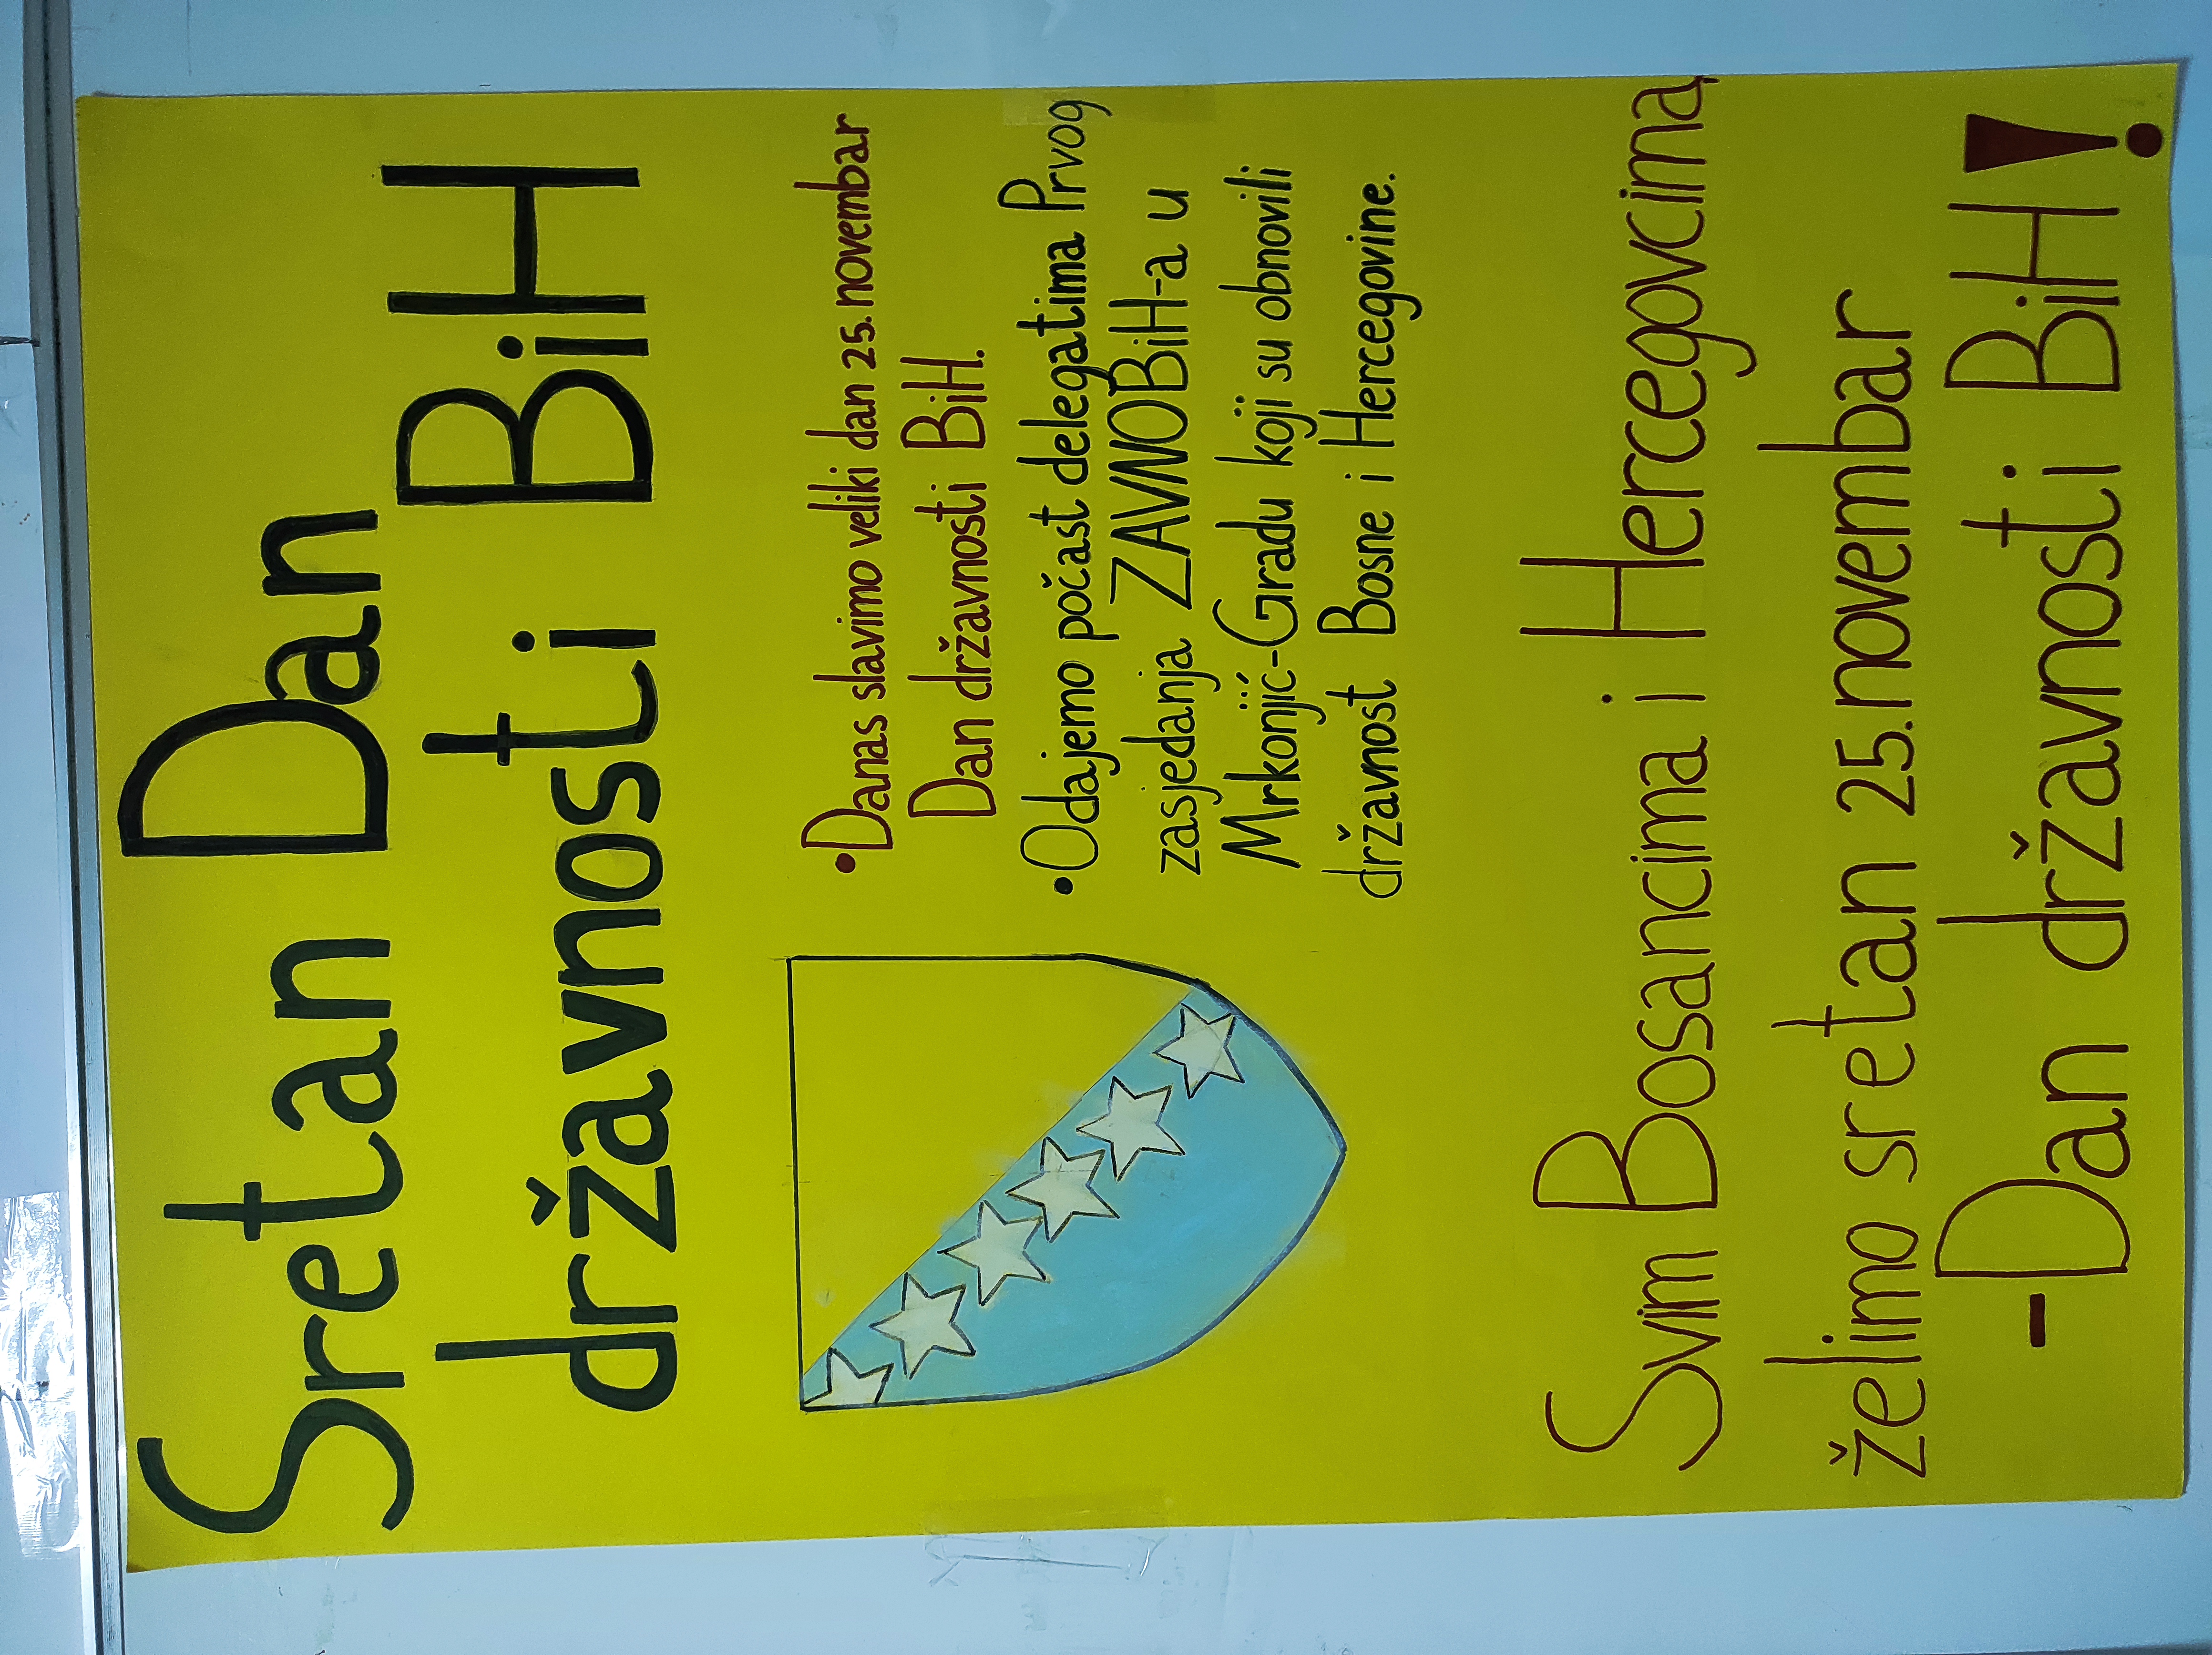 Sretan Dan
državnosti BiH
•Danas slavimo veliki dan 25. novembar
Dan državnosti BiH.
•Odajemo počast delegatima Prvog
zasjedanja ZAVNOBiH-a u
Mrkonjić-Gradu koji su obnovili
državnost Bosne i Hercegovine.
Svim Bosancima i Hercegovcima
želimo sretan 25. novembar
-Dan državnosti BiH!